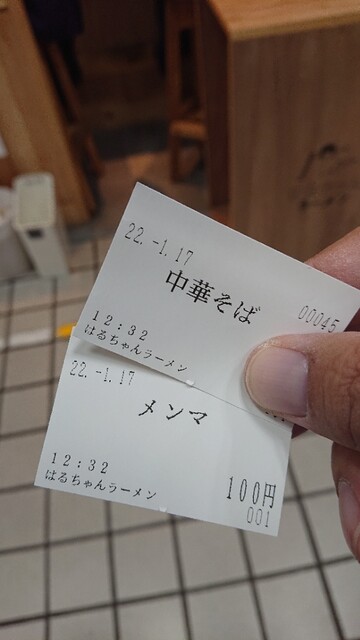 22.-1.17
中華そば
00045
12:32
はるちゃんラーメン
22.-1.17
メンマ
12:32
はるちゃんラーメン
100円
001